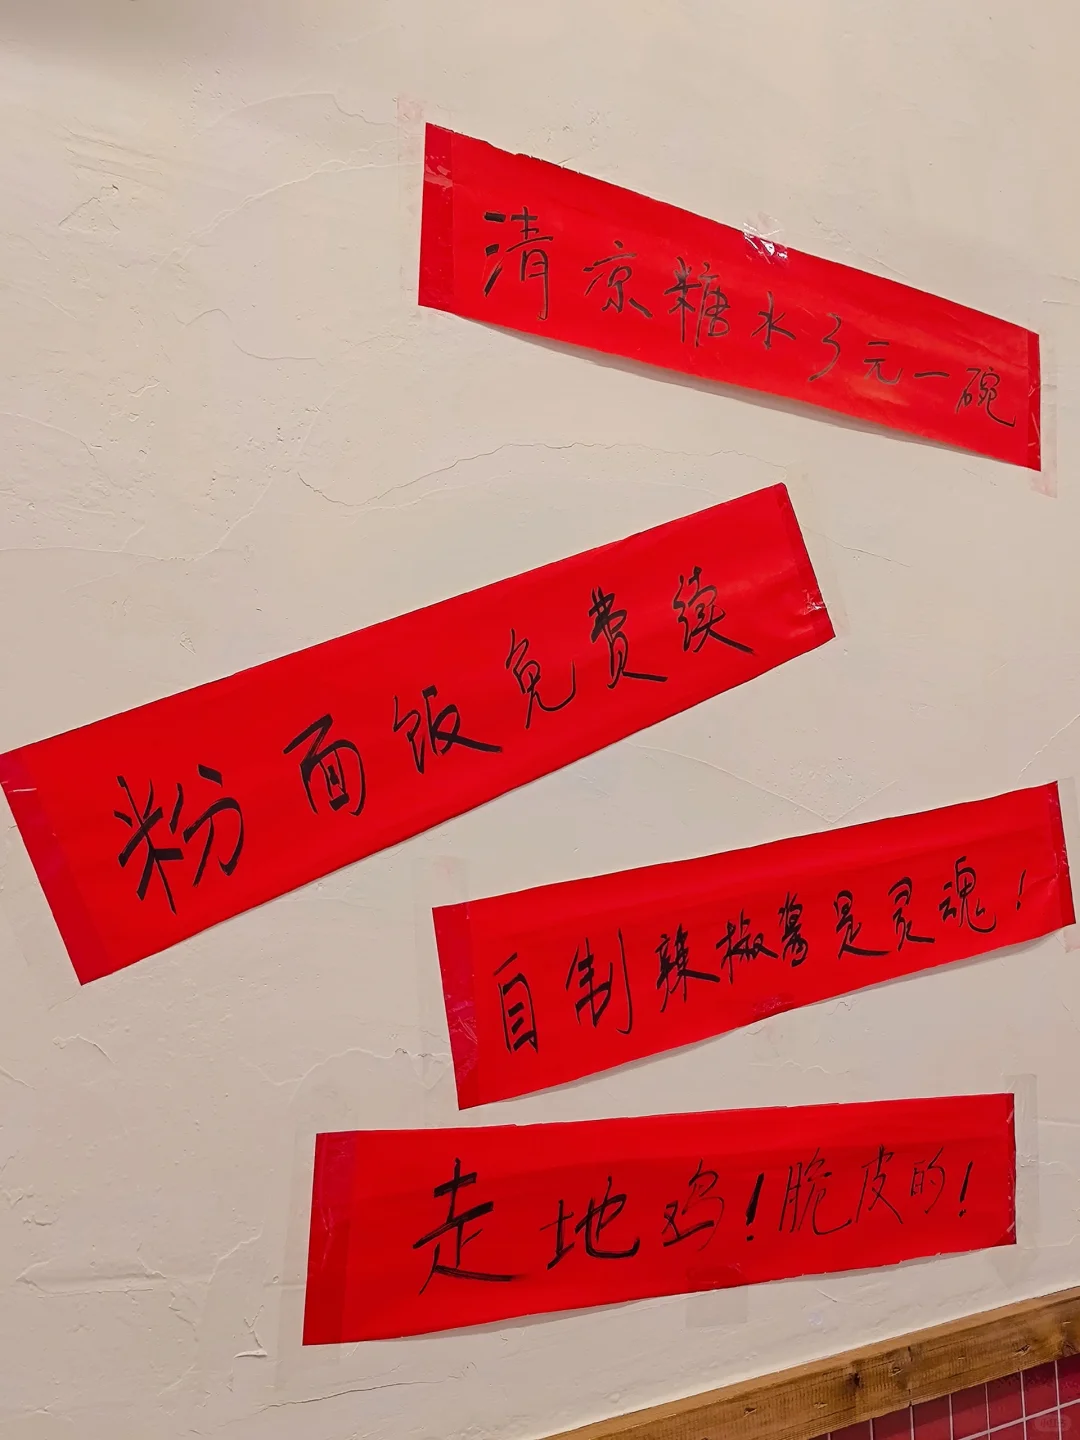 清凉糖水3元一碗
粉面饭免费续
自制辣椒酱是灵魂！
走地鸡！脆皮的！